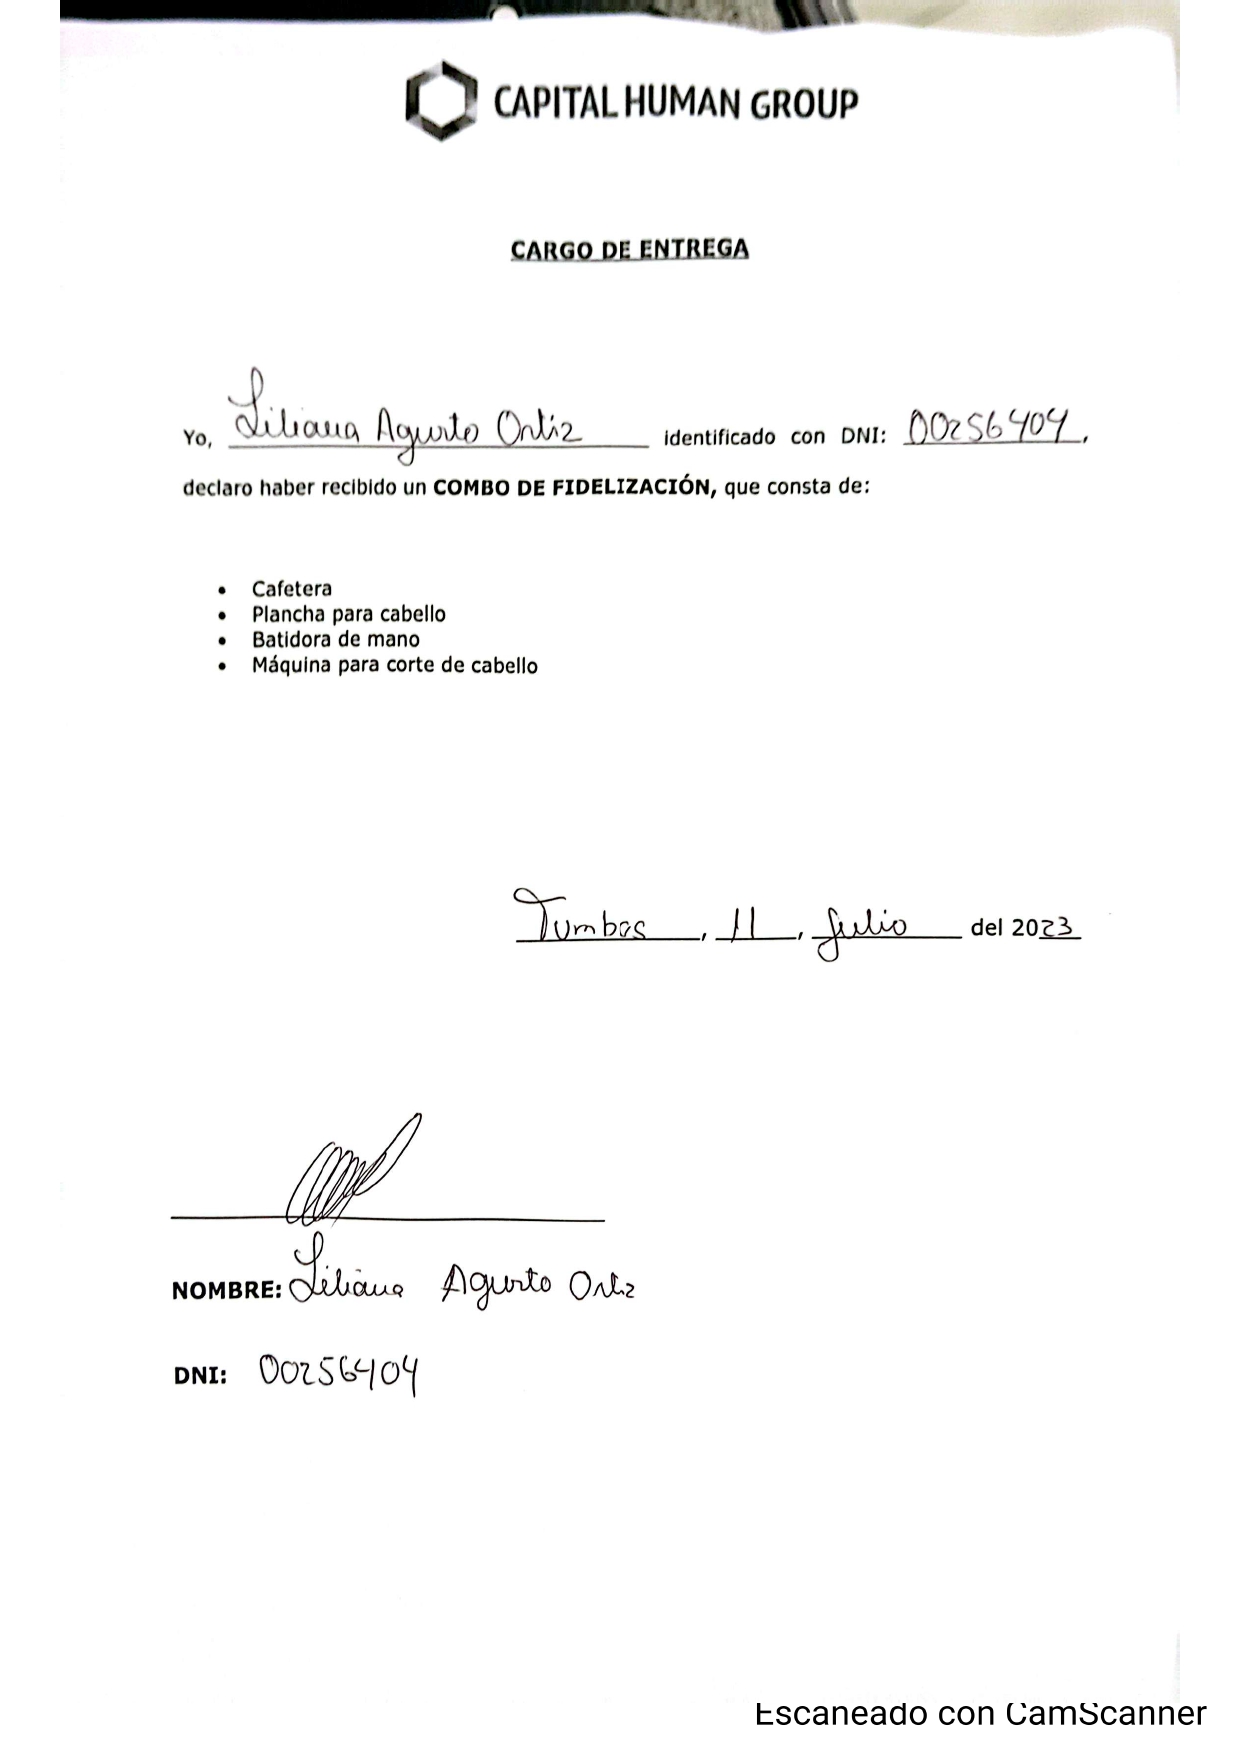 CAPITAL HUMAN GROUP
CARGO DE ENTREGA
Yo, Liliana Agurto Ortiz identificado con DNI: 00256404,
declaro haber recibido un COMBO DE FIDELIZACIÓN, que consta de:
• Cafetera
• Plancha para cabello
• Batidora de mano
• Máquina para corte de cabello
Tumbes, 11, Julio del 2023
NOMBRE: Liliana Agurto Ortiz
DNI: 00256404
Escaneado con CamScanner